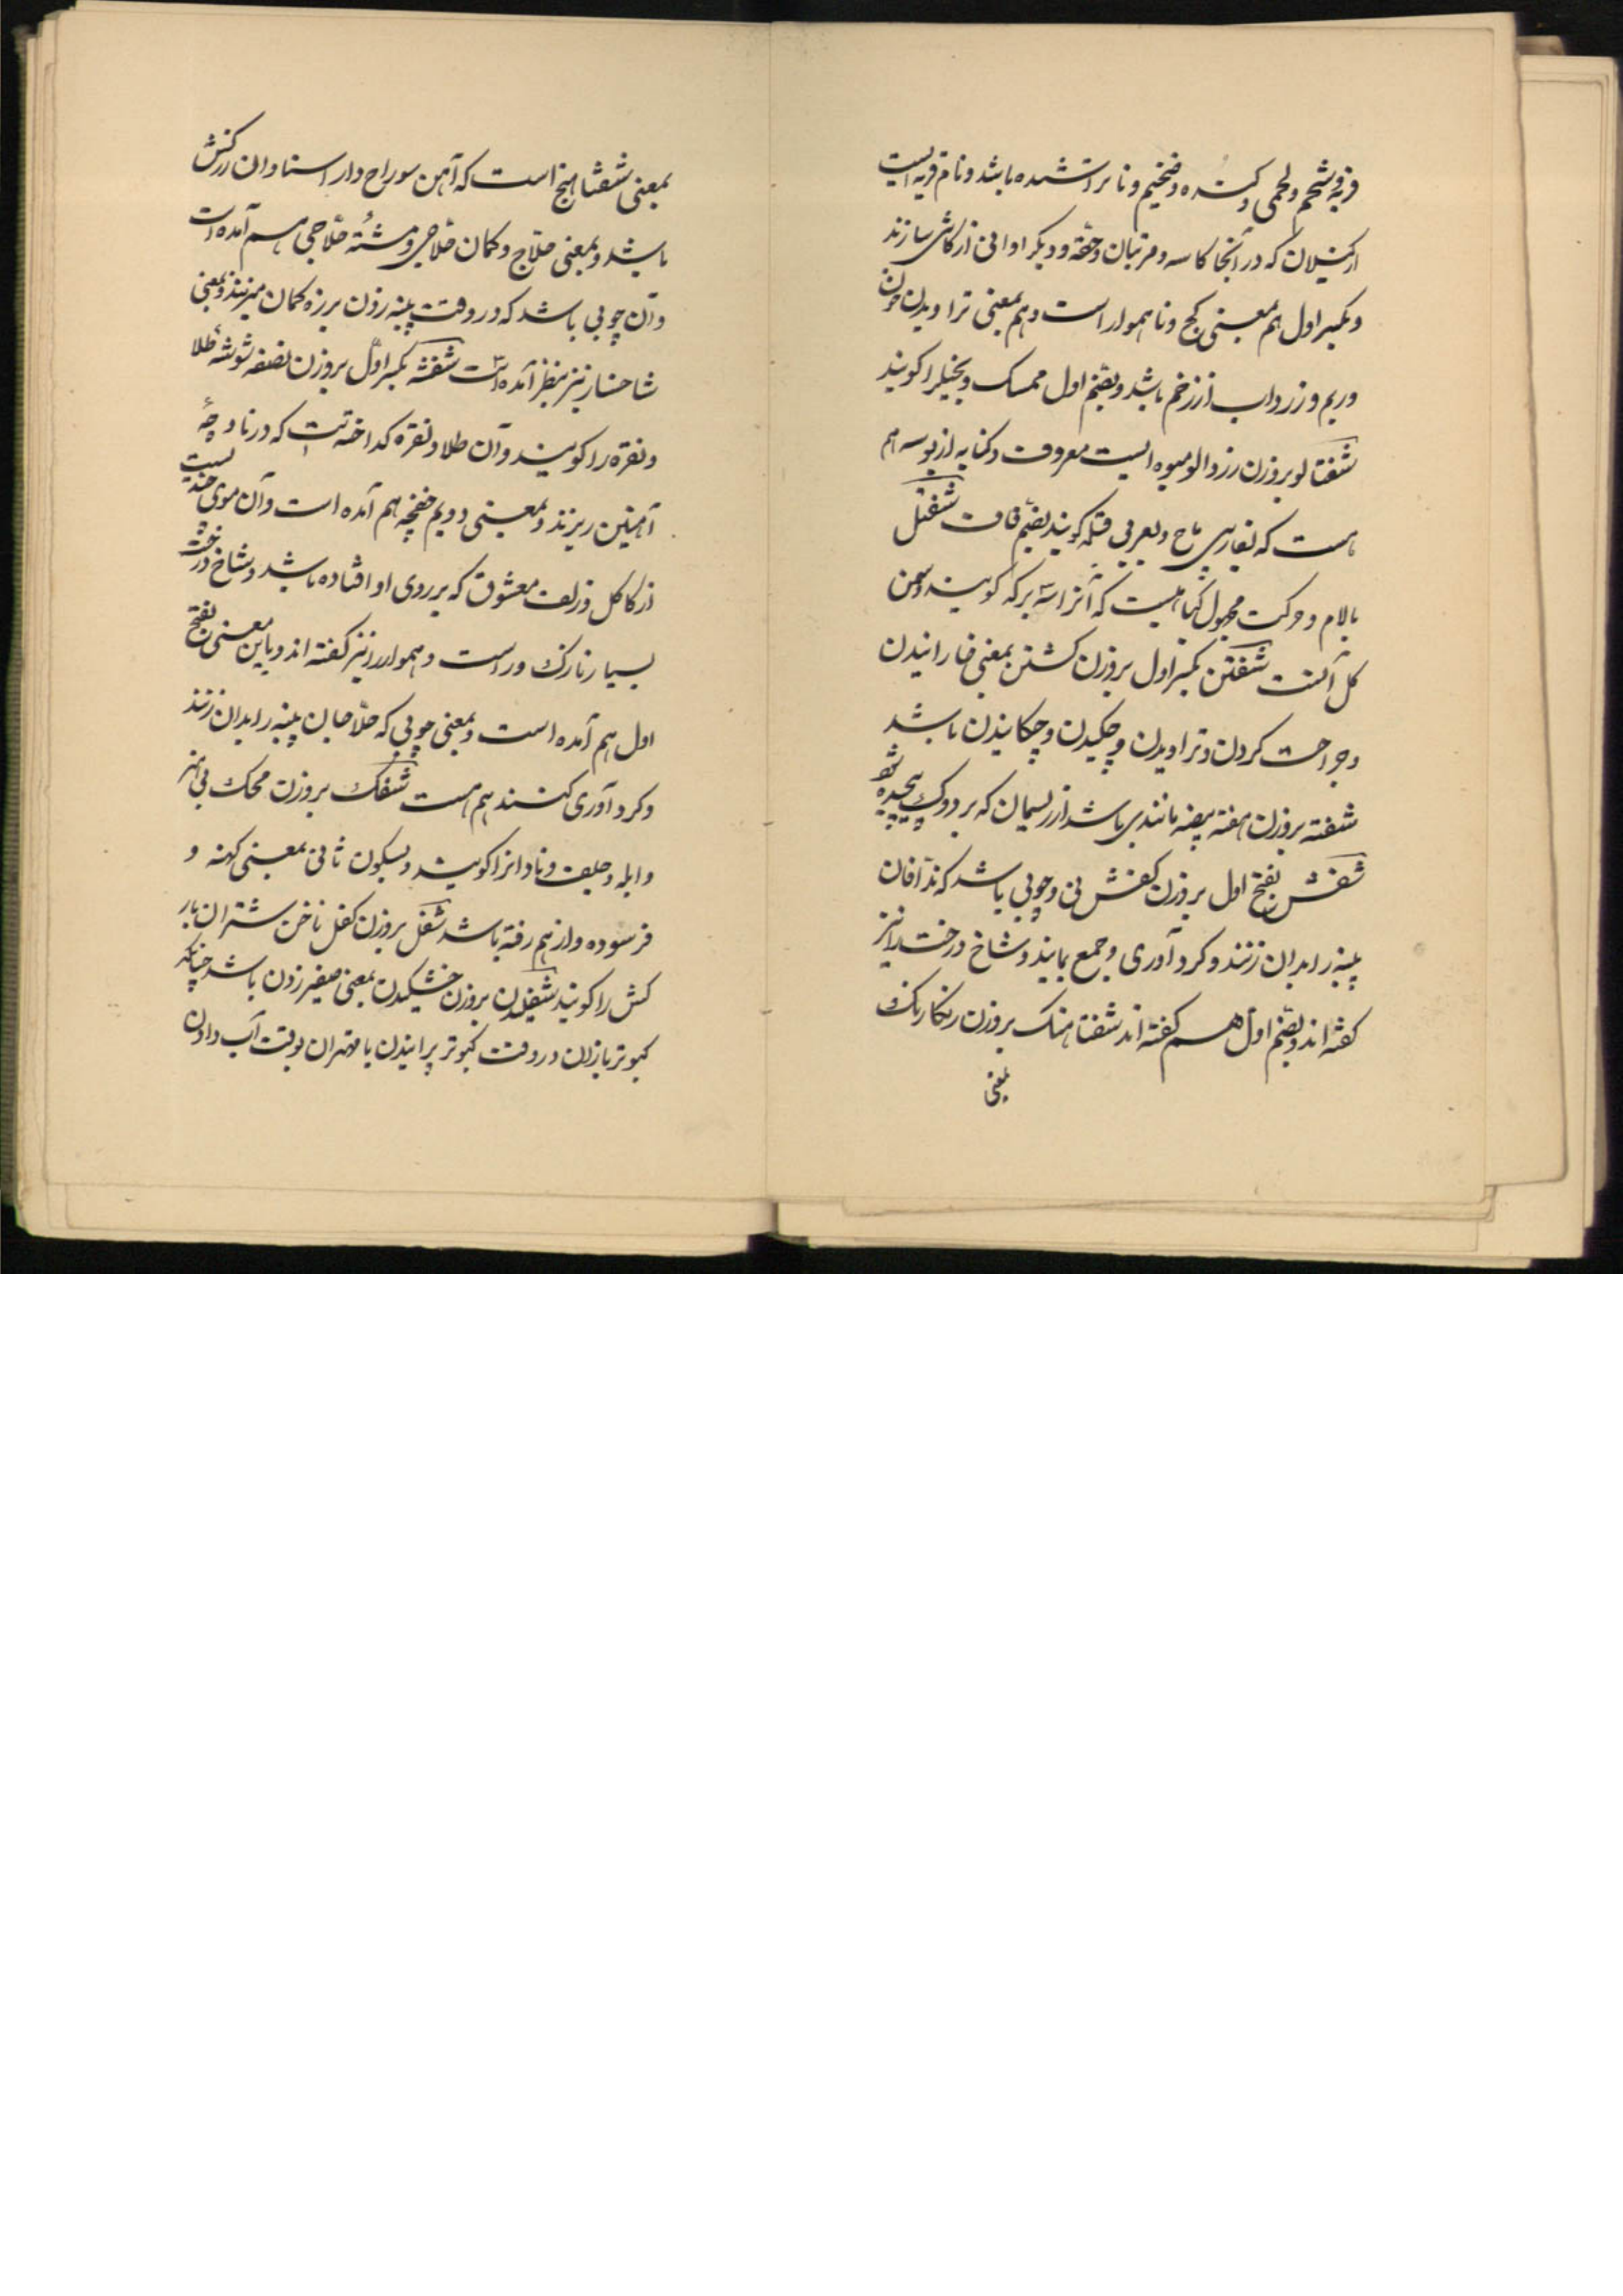 فربه و شحم ولحمی و کنده و ضخیم و ناتراشیده باشد و نام قریه ایست
از کیلان که در آنجا کاسه و مرتبان و حقه و دیکر اوانی از کاشی سازند
و بکسر اول هم بمعنی کج و ناهموار است و هم بمعنی تراویدن خون
و ریم و زرداب از زخم باشد و بضم اول ممسک و بخیلرا کویند
شفتالو بروزن زردالو میوه ایست معروف و کنایه از بوسه هم
هست که بفارسی ماچ و بعربی قبله کویند بضم قاف شفتل
بالام و حرکت مجهول کیاهیست که آنرا سه برکه کویند و سمن
کل آنست شفتن بکسر اول بروزن کشتن بمعنی خارانیدن
و جراحت کردن و تراویدن و چکیدن و چکانیدن باشد
شفته بروزن هفته بیضه مانندی باشد از ریسمان که بر دوک پیچیده شود
شفش بفتح اول بروزن کفش نی و چوبی باشد که ندافان
پنبه را بدان زنند و کرد آوری و جمع نمایند و شاخ درخت را نیز
کفته اند و بضم اول هم کفته اند شفتاهنک بروزن رنکارنک
بمعنی
بمعنی شفتاهنج است که آهن سوراخ دار استادان زرکش
باشد و بمعنی حلاج و کمان حلاجی و مشته حلاجی هم آمده است
و آن چوبی باشد که در وقت پنبه زدن بر زه کمان میزنند و بمعنی
شاخسار نیز بنظر آمده است شفشه بکسر اول بروزن نصفه شوشه طلا
و نقره را کویند و آن طلا و نقره کداخته است که در ناوچهٔ
آهنین ریزند و بمعنی دویم خفچه هم آمده است و آن موی چندیست
از کاکل و زلف معشوق که بر روی او افتاده باشد و شاخ درخت
بسیار نازک و راست و هموار را نیز کفته اند و باین معنی بفتح
اول هم آمده است و بمعنی چوبی که حلاجان پنبه را بدان زنند
و کرد آوری کنند هم هست شفک بروزن محک بی هنر
و ابله و جلف و نادانرا کویند و بسکون ثانی بمعنی کهنه و
فرسوده و از هم رفته باشد شفل بروزن کفل ناخن شتران بار
کش را کویند شفلیدن بروزن خشکیدن بمعنی صفیر زدن باشد چنانکه
کبوتربازان در وقت کبوتر پرانیدن یا مهتران بوقت آب دادن